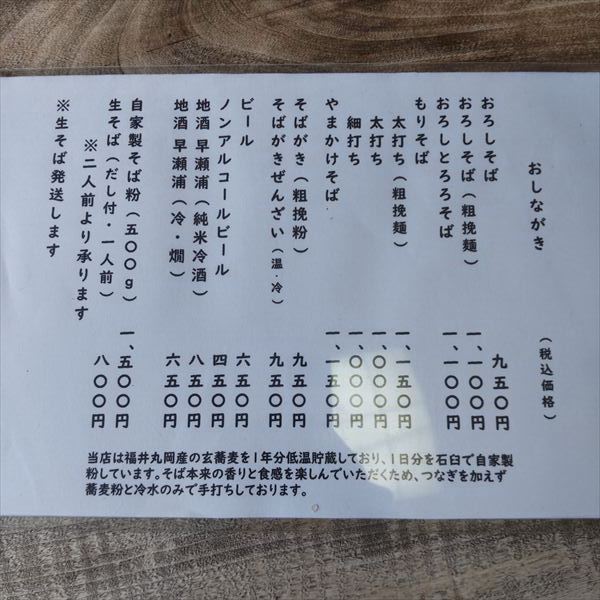 おしながき
（税込価格）
おろしそば 九五〇円
おろしそば（粗挽麺） 一、一〇〇円
おろしとろろそば 一、一〇〇円
もりそば
太打ち（粗挽麺） 一、一五〇円
太打ち 一、〇〇〇円
細打ち 一、〇〇〇円
やまかけそば 一、一五〇円
そばがき（粗挽粉） 九五〇円
そばがきぜんざい（温・冷） 九五〇円
ビール 六五〇円
ノンアルコールビール 四五〇円
地酒 早瀬浦（純米冷酒） 八五〇円
地酒 早瀬浦（冷・燗） 六五〇円
自家製そば粉（五〇〇g） 一、五〇〇円
生そば（だし付・一人前） 八〇〇円
※二人前より承ります
※生そば発送します
当店は福井丸岡産の玄蕎麦を1年分低温貯蔵しており、1日分を石臼で自家製
粉しています。そば本来の香りと食感を楽しんでいただくため、つなぎを加えず
蕎麦粉と冷水のみで手打ちしております。